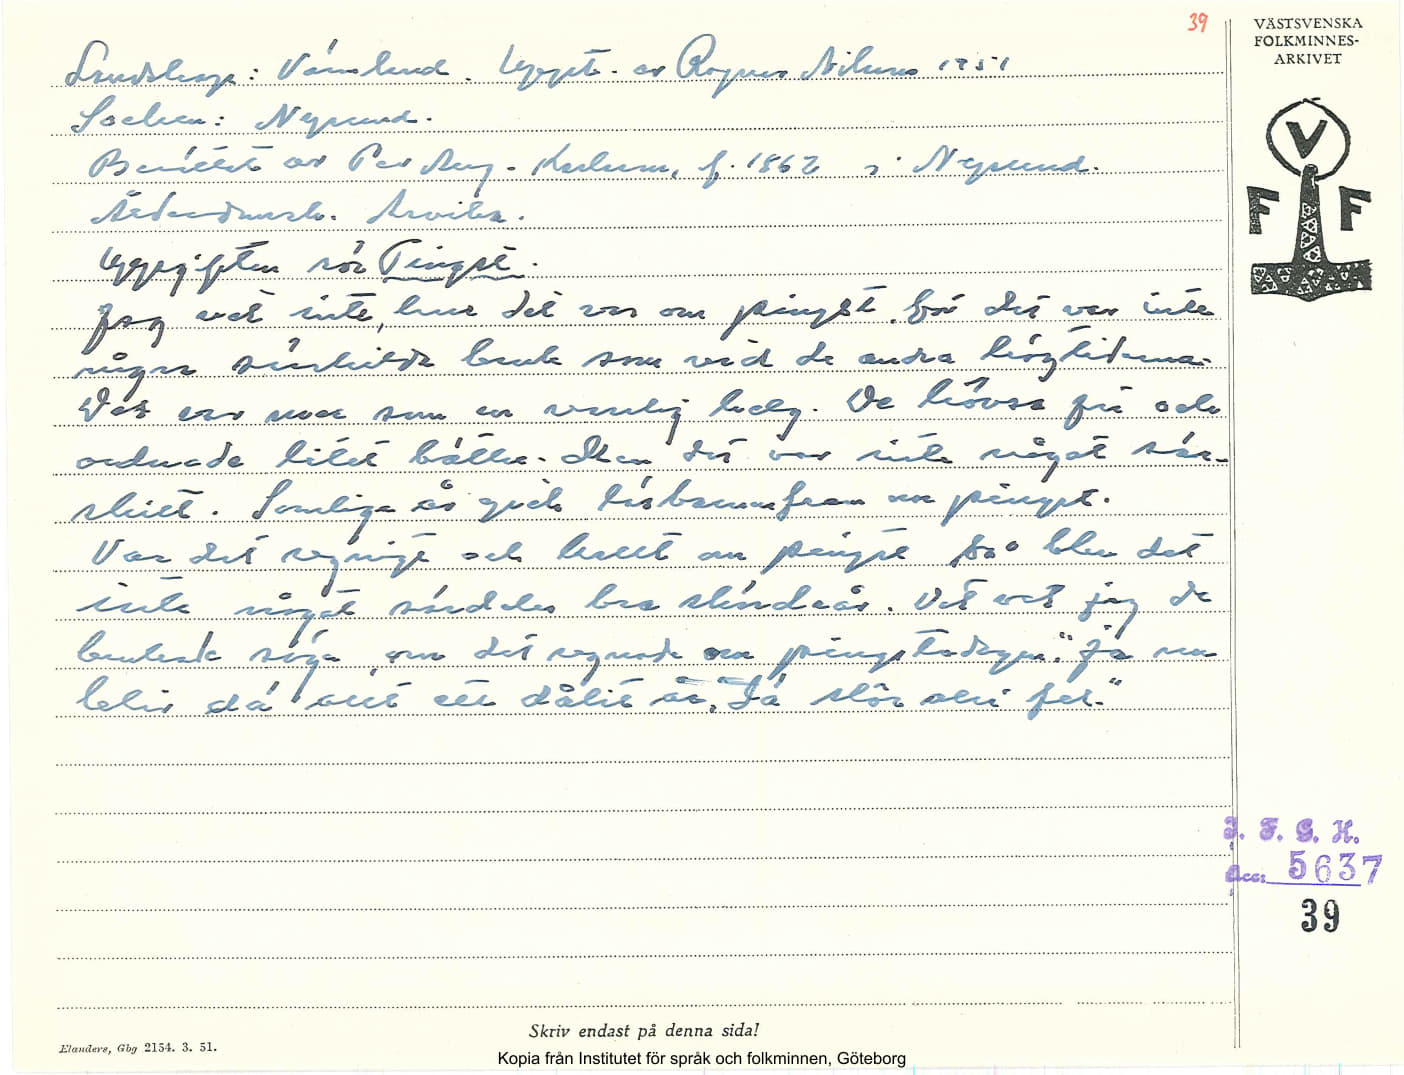 39
VÄSTSVENSKA
FOLKMINNES-
ARKIVET
V
F F
Landskap: Värmland. Uppt. av Ragnar Nilsson 1951
Socken: Nysund.
Berättat av Per Aug. Karlsson, f. 1862 i Nysund.
Ålderdomsh. Arvika.
Uppgiften rör Pingst.
Jag vet inte, hur det var om pingst, för det var inte
några särskilda bruk som vid de andra högtiderna.
Det var mer som en vanlig helg. De och
ordnade litet bättre. Men det var inte något sär-
skilt. Somliga år gick läsbarnen fram om pingst.
Var det regnigt och kallt om pingst så blev det
inte något särdeles bra skördeår. Det vet jag de
brukade säga, om det regnade om pingstadagen: "Ja nu
blir dä allt ett dålit år, Dä slår alri fel."
I. F. G. H.
Acc: 5637
39
Skriv endast på denna sida!
Elanders, Gbg 2154. 3. 51.
Kopia från Institutet för språk och folkminnen, Göteborg